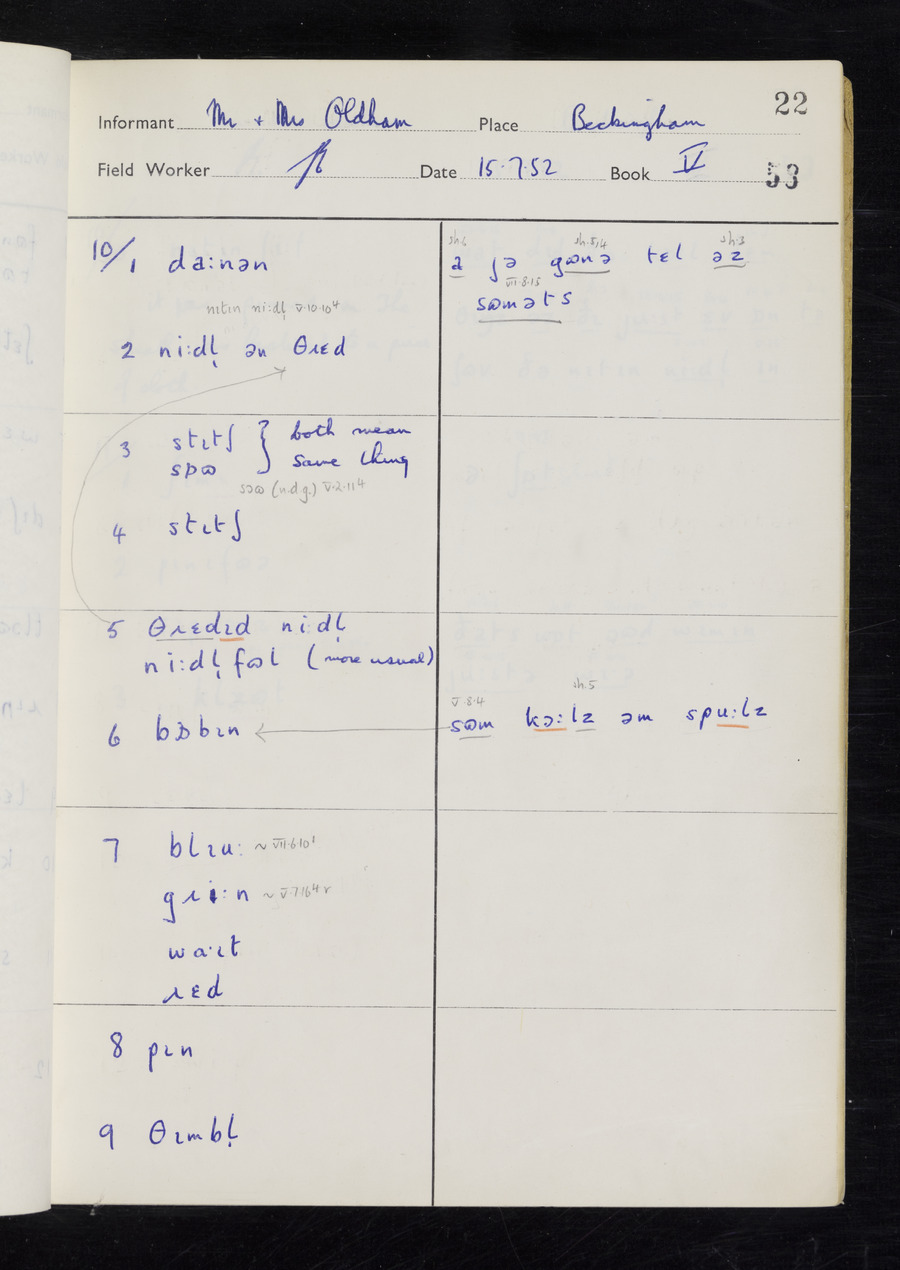 22
Informant Mr + Mrs Oldham Place Beckingham
Field Worker Date 15.7.52 Book V
53
10/1 da:nən
nɪtɪn ni:dl̩ V.10.10⁴
2 ni:dl̩ ən θɹɛd
3 stɪtʃ } both mean
spɷ } same thing
sɔɷ (n.d.g.) V.2.11⁴
4 stɪtʃ
5 θɹɛdɪd ni:dl̩
ni:dl̩ fɷl (more usual)
6 bɒbɪn
7 blɪu: ~ VII.6.10¹
gɹi:n ~ V.7.16⁴ r
wa·ɪt
ɹɛd
8 pɪn
9 θɪmbl̩
sh.6 sh.5,4 sh.3
a jə gɷnə tɛl əz
VII.8.15
sɷməts
V.8.4 sh.5
sɷm kɔ:lz əm spu:lz